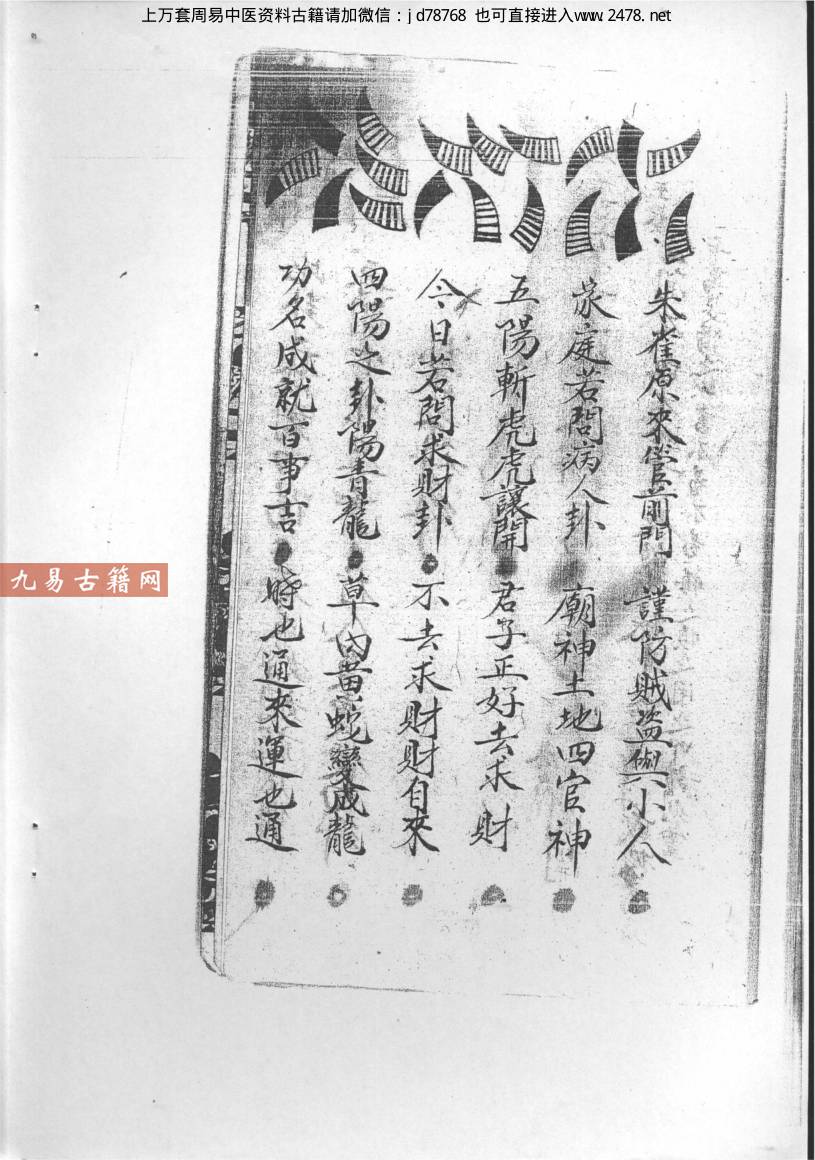 上万套周易中医资料古籍请加微信：jd78768 也可直接进入www.2478.net
朱雀原來管前門 謹防賊盗與小人
家庭若問病人卦 廟神土地四官神
五陽斬虎虎讓開 君子正好去求財
今日若問求財卦 不去求財財自來
四陽之卦陽青龍 草内黄蛇變成龍
功名成就百事吉 時也通來運也通
九易古籍网